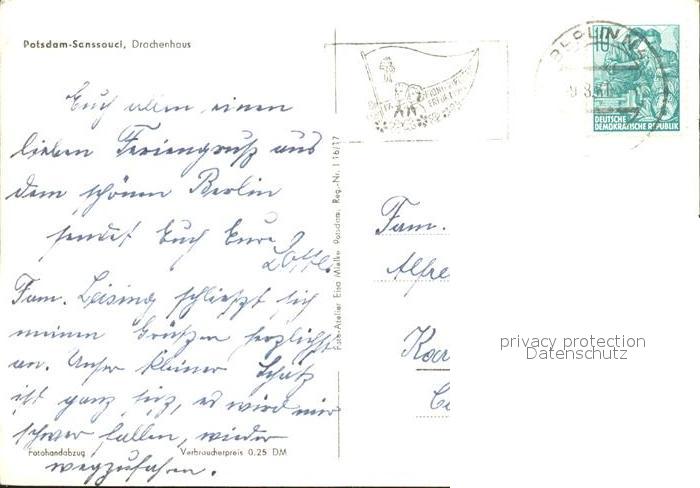 Potsdam-Sanssouci, Drachenhaus
Euch allen einen
lieben Feriengruß aus
dem schönen Berlin
sendet Euch Eure
Lotte.
Fam. Leising schließt sich
meinen Grüßen herzlichst
an. Unser kleiner Schatz
ist ganz süß, es wird mir
schwer fallen, wieder
wegzufahren.
Fotohandabzug Verbraucherpreis 0,25 DM
Foto-Atelier Erica Mielke Potsdam. Reg.-Nr. I 16/17
BERLIN
10
DEUTSCHE
DEMOKRATISCHE REPUBLIK
Fam.
Alfre
Kar
privacy protection
Datenschutz